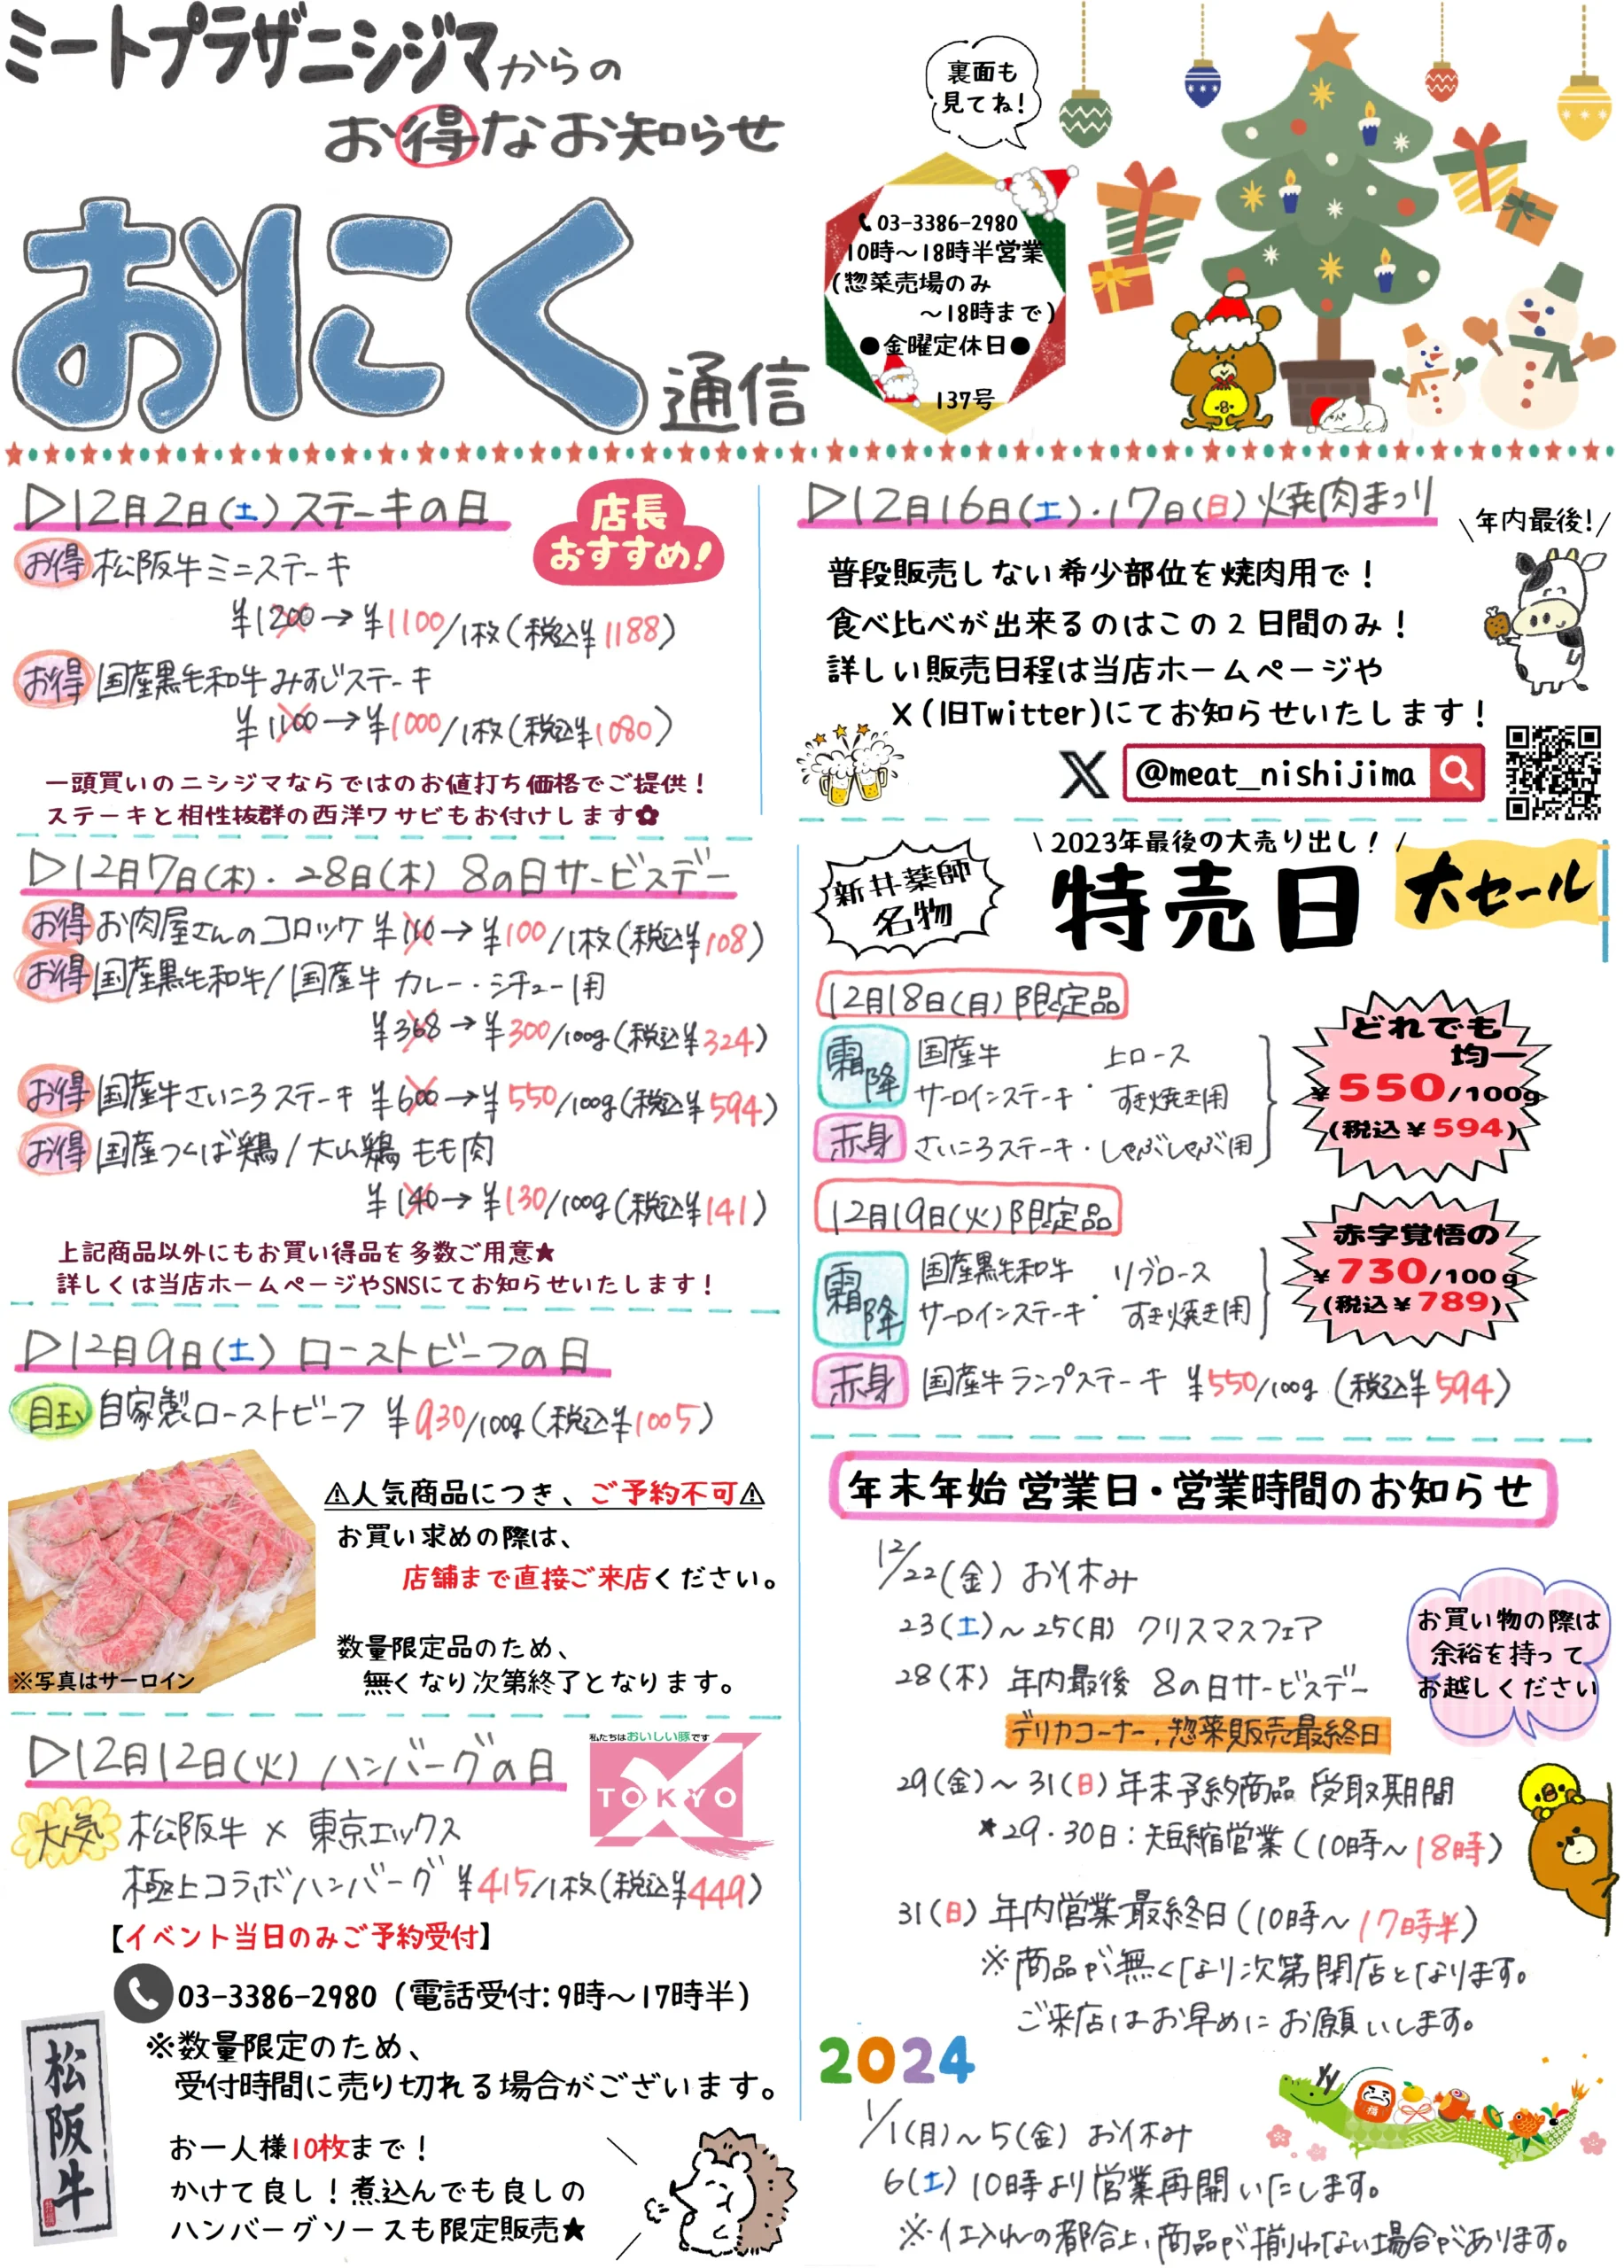 ミートプラザニシジマからの
お得なお知らせ
おにく通信
裏面も
見てね!
03-3386-2980
10時〜18時半営業
(惣菜売場のみ
〜18時まで)
●金曜定休日●
137号
▷12月2日(土)ステーキの日
店長
おすすめ!
お得 松阪牛ミニステーキ
¥1200→¥1100/1枚(税込¥1188)
お得 国産黒毛和牛みすじステーキ
¥1100→¥1000/1枚(税込¥1080)
一頭買いのニシジマならではのお値打ち価格でご提供!
ステーキと相性抜群の西洋ワサビもお付けします✿
▷12月7日(木)・28日(木) 8の日サービスデー
お得 お肉屋さんのコロッケ ¥110→¥100/1枚(税込¥108)
お得 国産黒毛和牛/国産牛 カレー・シチュー用
¥368→¥300/100g(税込¥324)
お得 国産牛さいころステーキ ¥600→¥550/100g(税込¥594)
お得 国産つくば鶏/大山鶏 もも肉
¥140→¥130/100g(税込¥141)
上記商品以外にもお買い得品を多数ご用意★
詳しくは当店ホームページやSNSにてお知らせいたします!
▷12月9日(土) ローストビーフの日
目玉 自家製ローストビーフ ¥930/100g(税込¥1005)
⚠人気商品につき、ご予約不可⚠
お買い求めの際は、
店舗まで直接ご来店ください。
数量限定品のため、
無くなり次第終了となります。
※写真はサーロイン
▷12月12日(火) ハンバーグの日
私たちはおいしい豚です
TOKYO X
大人気 松阪牛×東京エックス
極上コラボハンバーグ ¥415/1枚(税込¥449)
【イベント当日のみご予約受付】
03-3386-2980(電話受付:9時〜17時半)
※数量限定のため、
受付時間に売り切れる場合がございます。
松阪牛
お一人様10枚まで!
かけて良し!煮込んでも良しの
ハンバーグソースも限定販売★
▷12月16日(土)・17日(日)焼肉まつり
\年内最後!/
普段販売しない希少部位を焼肉用で!
食べ比べが出来るのはこの2日間のみ!
詳しい販売日程は当店ホームページや
X(旧Twitter)にてお知らせいたします!
X @meat_nishijima
新井薬師
名物
\2023年最後の大売り出し!/
特売日
大セール
12月18日(月)限定品
霜降 国産牛 上ロース
サーロインステーキ・すき焼き用
赤身 さいころステーキ・しゃぶしゃぶ用
どれでも
均一
¥550/100g
(税込¥594)
12月19日(火)限定品
霜降 国産黒毛和牛 リブロース
サーロインステーキ・すき焼き用
赤字覚悟の
¥730/100g
(税込¥789)
赤身 国産牛ランプステーキ ¥550/100g(税込¥594)
年末年始 営業日・営業時間のお知らせ
12/22(金) お休み
23(土)〜25(月) クリスマスフェア
28(木) 年内最後 8の日サービスデー
デリカコーナー、惣菜販売最終日
お買い物の際は
余裕を持って
お越しください
29(金)〜31(日)年末予約商品 受取期間
★29・30日:短縮営業(10時〜18時)
31(日) 年内営業最終日(10時〜17時半)
※商品が無くなり次第閉店となります。
ご来店はお早めにお願いします。
2024
1/1(月)〜5(金) お休み
6(土) 10時より営業再開いたします。
※仕入れの都合上、商品が揃わない場合があります。